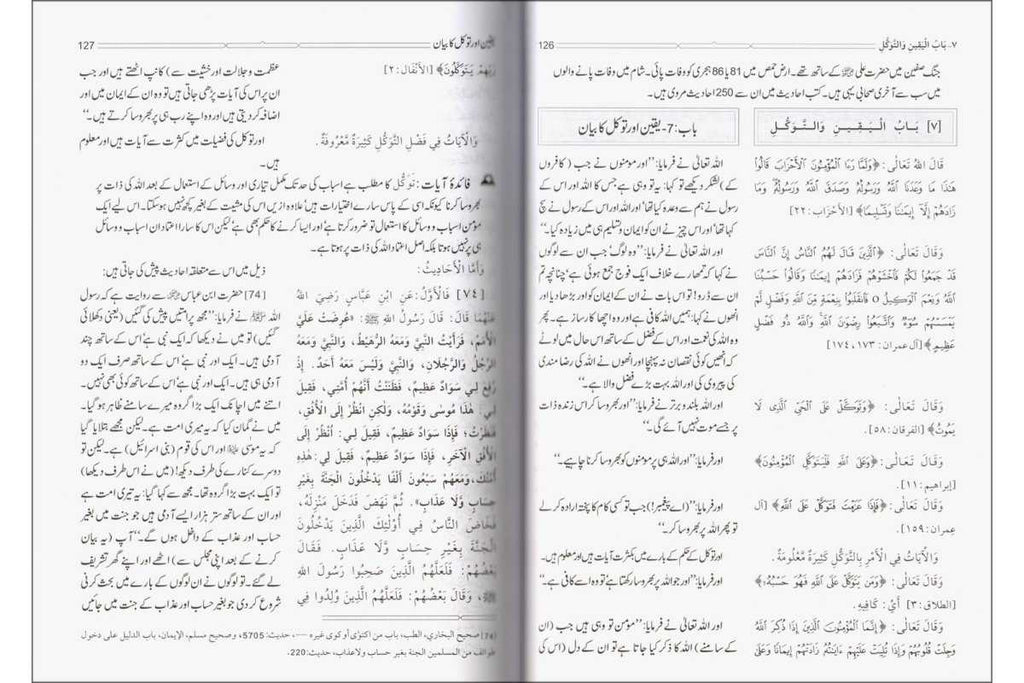 ٧-بَابُ الْيَقِينِ وَالتَّوَكُّلِ
126
جنگ صفین میں حضرت علی ؓ کے ساتھ تھے۔ ارض حمص میں 81 یا 86 ہجری کو وفات پائی۔ شام میں وفات پانے والوں
میں سب سے آخری صحابی یہی ہیں۔ کتب احادیث میں ان سے 250 احادیث مروی ہیں۔
[٧] بَابُ الْيَقِينِ وَالتَّوَكُّلِ
باب: 7- یقین اور توکل کا بیان
قَالَ اللهُ تَعَالَى: ﴿وَلَمَّا رَءَا ٱلْمُؤْمِنُونَ ٱلْأَحْزَابَ قَالُوا
هَٰذَا مَا وَعَدَنَا ٱللَّهُ وَرَسُولُهُۥ وَصَدَقَ ٱللَّهُ وَرَسُولُهُۥ وَمَا
زَادَهُمْ إِلَّآ إِيمَٰنًا وَتَسْلِيمًا﴾ [الأحزاب:٢٢]
وَقَالَ تَعَالَى: ﴿ٱلَّذِينَ قَالَ لَهُمُ ٱلنَّاسُ إِنَّ ٱلنَّاسَ
قَدْ جَمَعُوا لَكُمْ فَٱخْشَوْهُمْ فَزَادَهُمْ إِيمَٰنًا وَقَالُوا حَسْبُنَا
ٱللَّهُ وَنِعْمَ ٱلْوَكِيلُ ٥ فَٱنقَلَبُوا بِنِعْمَةٍ مِّنَ ٱللَّهِ وَفَضْلٍ لَّمْ
يَمْسَسْهُمْ سُوٓءٌ وَٱتَّبَعُوا رِضْوَٰنَ ٱللَّهِ وَٱللَّهُ ذُو فَضْلٍ
عَظِيمٍ﴾ [آل عمران:١٧٣، ١٧٤]
وَقَالَ تَعَالَى: ﴿وَتَوَكَّلْ عَلَى ٱلْحَيِّ ٱلَّذِى لَا
يَمُوتُ﴾ [الفرقان:٥٨].
وَقَالَ تَعَالَى: ﴿وَعَلَى ٱللَّهِ فَلْيَتَوَكَّلِ ٱلْمُؤْمِنُونَ﴾
[إبراهيم:١١].
وَقَالَ تَعَالَى: ﴿فَإِذَا عَزَمْتَ فَتَوَكَّلْ عَلَى ٱللَّهِ﴾ [آل
عمران:١٥٩].
وَالْآيَاتُ فِي الْأَمْرِ بِالتَّوَكُّلِ كَثِيرَةٌ مَّعْلُومَةٌ.
وَقَالَ تَعَالَى: ﴿وَمَن يَتَوَكَّلْ عَلَى ٱللَّهِ فَهُوَ حَسْبُهُۥ﴾
[الطلاق:٣] أَيْ: كَافِيهِ.
وَقَالَ تَعَالَى: ﴿إِنَّمَا ٱلْمُؤْمِنُونَ ٱلَّذِينَ إِذَا ذُكِرَ ٱللَّهُ
وَجِلَتْ قُلُوبُهُمْ وَإِذَا تُلِيَتْ عَلَيْهِمْ ءَايَٰتُهُۥ زَادَتْهُمْ إِيمَٰنًا وَعَلَىٰ
اللہ تعالیٰ نے فرمایا: ’’اور مومنوں نے جب (کافروں
کے) لشکر دیکھے تو کہا: یہ تو وہی ہے جس کا اللہ اور اس کے
رسول نے ہم سے وعدہ کیا تھا‘ اور اللہ اور اس کے رسول نے سچ
کہا تھا‘ اور اس چیز نے ان کو ایمان و تسلیم ہی میں زیادہ کیا۔‘‘
اور اللہ تعالیٰ نے فرمایا: ’’وہ لوگ‘ جب ان سے لوگوں
نے کہا کہ تمہارے خلاف ایک فوج جمع ہوئی ہے‘ چنانچہ تم
ان سے ڈرو! تو اس بات نے ان کے ایمان کو اور بڑھا دیا اور
انھوں نے کہا: ہمیں اللہ کافی ہے اور وہ اچھا کارساز ہے۔ پھر
وہ اللہ کی نعمت اور اس کے فضل کے ساتھ اس حال میں لوٹے
کہ انھیں کوئی نقصان نہ پہنچا اور انھوں نے اللہ کی رضا مندی
کی پیروی کی اور اللہ بہت بڑے فضل والا ہے۔‘‘
اور اللہ بلند و برتر نے فرمایا: ’’اور بھروسا کر اس زندہ ذات
پر جسے موت نہیں آئے گی۔‘‘
اور فرمایا: ’’اور اللہ ہی پر مومنوں کو بھروسا کرنا چاہیے۔‘‘
اور فرمایا: ’’(اے پیغمبر!) جب تو کسی کام کا پختہ ارادہ کر لے
تو پھر اللہ پر بھروسا کر۔‘‘
اور توکل کے حکم کے بارے میں بکثرت آیات ہیں اور معلوم ہیں۔
اور فرمایا: ’’اور جو اللہ پر بھروسا رکھتا ہے تو وہ اسے کافی ہے۔‘‘
اور اللہ تعالیٰ نے فرمایا: ’’مومن تو وہی ہیں جب (ان
کے سامنے) اللہ کا ذکر کیا جاتا ہے تو ان کے دل (اس کی
یقین اور توکل کا بیان
127
رَبِّهِمْ يَتَوَكَّلُونَ﴾ [الأنفال:٢]
وَالْآيَاتُ فِي فَضْلِ التَّوَكُّلِ كَثِيرَةٌ مَّعْرُوفَةٌ.
عظمت و جلالت اور خشیت سے) کانپ اٹھتے ہیں اور جب
ان پر اس کی آیات پڑھی جاتی ہیں تو وہ ان کے ایمان میں اور
اضافہ کر دیتی ہیں اور وہ اپنے رب ہی پر بھروسا کرتے ہیں۔‘‘
اور توکل کی فضیلت میں کثرت سے آیات ہیں اور معلوم
ہیں۔
فائدۂ آیات: توکُّل کا مطلب ہے اسباب کی حد تک مکمل تیاری اور وسائل کے استعمال کے بعد اللہ کی ذات پر
بھروسا کرنا کیونکہ اسی کے پاس سارے اختیارات ہیں‘ علاوہ ازیں اس کی مشیت کے بغیر کچھ نہیں ہو سکتا۔ اس لیے ایک
مومن اسباب و وسائل کا استعمال تو ضرور کرتا ہے اور ایسا کرنے کا حکم بھی ہے‘ لیکن اس کا سارا اعتماد ان اسباب و وسائل
ہی پر نہیں ہوتا بلکہ اصل اعتماد اللہ کی ذات پر ہوتا ہے۔
وَأَمَّا الْأَحَادِيثُ:
[٧٤] فَالْأَوَّلُ: عَنِ ابْنِ عَبَّاسٍ رَضِيَ اللهُ
عَنْهُمَا قَالَ: قَالَ رَسُولُ اللهِ ﷺ: «عُرِضَتْ عَلَيَّ
الْأُمَمُ، فَرَأَيْتُ النَّبِيَّ وَمَعَهُ الرُّهَيْطُ، وَالنَّبِيَّ وَمَعَهُ
الرَّجُلُ وَالرَّجُلَانِ، وَالنَّبِيَّ وَلَيْسَ مَعَهُ أَحَدٌ. إِذْ
رُفِعَ لِي سَوَادٌ عَظِيمٌ، فَظَنَنْتُ أَنَّهُمْ أُمَّتِي، فَقِيلَ
لِي: هٰذَا مُوسَى وَقَوْمُهُ، وَلٰكِنِ انْظُرْ إِلَى الْأُفُقِ،
فَنَظَرْتُ، فَإِذَا سَوَادٌ عَظِيمٌ، فَقِيلَ لِي: انْظُرْ إِلَى
الْأُفُقِ الْآخَرِ، فَإِذَا سَوَادٌ عَظِيمٌ، فَقِيلَ لِي: هٰذِهِ
أُمَّتُكَ، وَمَعَهُمْ سَبْعُونَ أَلْفًا يَدْخُلُونَ الْجَنَّةَ بِغَيْرِ
حِسَابٍ وَّلَا عَذَابٍ». ثُمَّ نَهَضَ فَدَخَلَ مَنْزِلَهُ،
فَخَاضَ النَّاسُ فِي أُولٰئِكَ الَّذِينَ يَدْخُلُونَ
الْجَنَّةَ بِغَيْرِ حِسَابٍ وَّلَا عَذَابٍ. فَقَالَ
بَعْضُهُمْ: فَلَعَلَّهُمُ الَّذِينَ صَحِبُوا رَسُولَ اللهِ
ﷺ، وَقَالَ بَعْضُهُمْ: فَلَعَلَّهُمُ الَّذِينَ وُلِدُوا فِي
ذیل میں اس سے متعلقہ احادیث پیش کی جاتی ہیں:
[74] حضرت ابن عباس ؓ سے روایت ہے کہ رسول
اللہ ﷺ نے فرمایا: ’’مجھ پر امتیں پیش کی گئیں (یعنی دکھلائی
گئیں) تو میں نے دیکھا کہ ایک نبی ہے‘ اس کے ساتھ چند
آدمی ہیں۔ ایک اور نبی ہے‘ اس کے ساتھ صرف ایک دو
آدمی ہی ہیں۔ ایک اور نبی ہے‘ اس کے ساتھ کوئی بھی نہیں۔
اتنے میں اچانک ایک بڑا گروہ میرے سامنے ظاہر ہو گیا۔
میں نے گمان کیا کہ یہ میری امت ہے۔ لیکن مجھے بتلایا گیا
کہ یہ موسیٰ ؑ اور اس کی قوم (بنی اسرائیل) ہے۔ لیکن تو
دوسرے کنارے کی طرف دیکھ! (میں نے اس طرف دیکھا)
تو ایک بہت بڑا گروہ تھا۔ مجھ سے کہا گیا: یہ تیری امت ہے
اور ان کے ساتھ ستر ہزار ایسے آدمی ہیں جو جنت میں بغیر
حساب اور عذاب کے داخل ہوں گے۔‘‘ آپ (یہ بیان
کرنے کے بعد اپنی مجلس سے) اٹھے اور اپنے گھر تشریف
لے گئے۔ تو لوگوں نے ان لوگوں کے بارے میں بحث کرنی
شروع کر دی جو بغیر حساب اور عذاب کے جنت میں جائیں
[74] صحيح البخاري، الطب، باب من اكتوى أو كوى غيره ...، حديث:5705، وصحيح مسلم، الإيمان، باب الدليل على دخول
طوائف من المسلمين الجنة بغير حساب ولا عذاب، حديث:220.